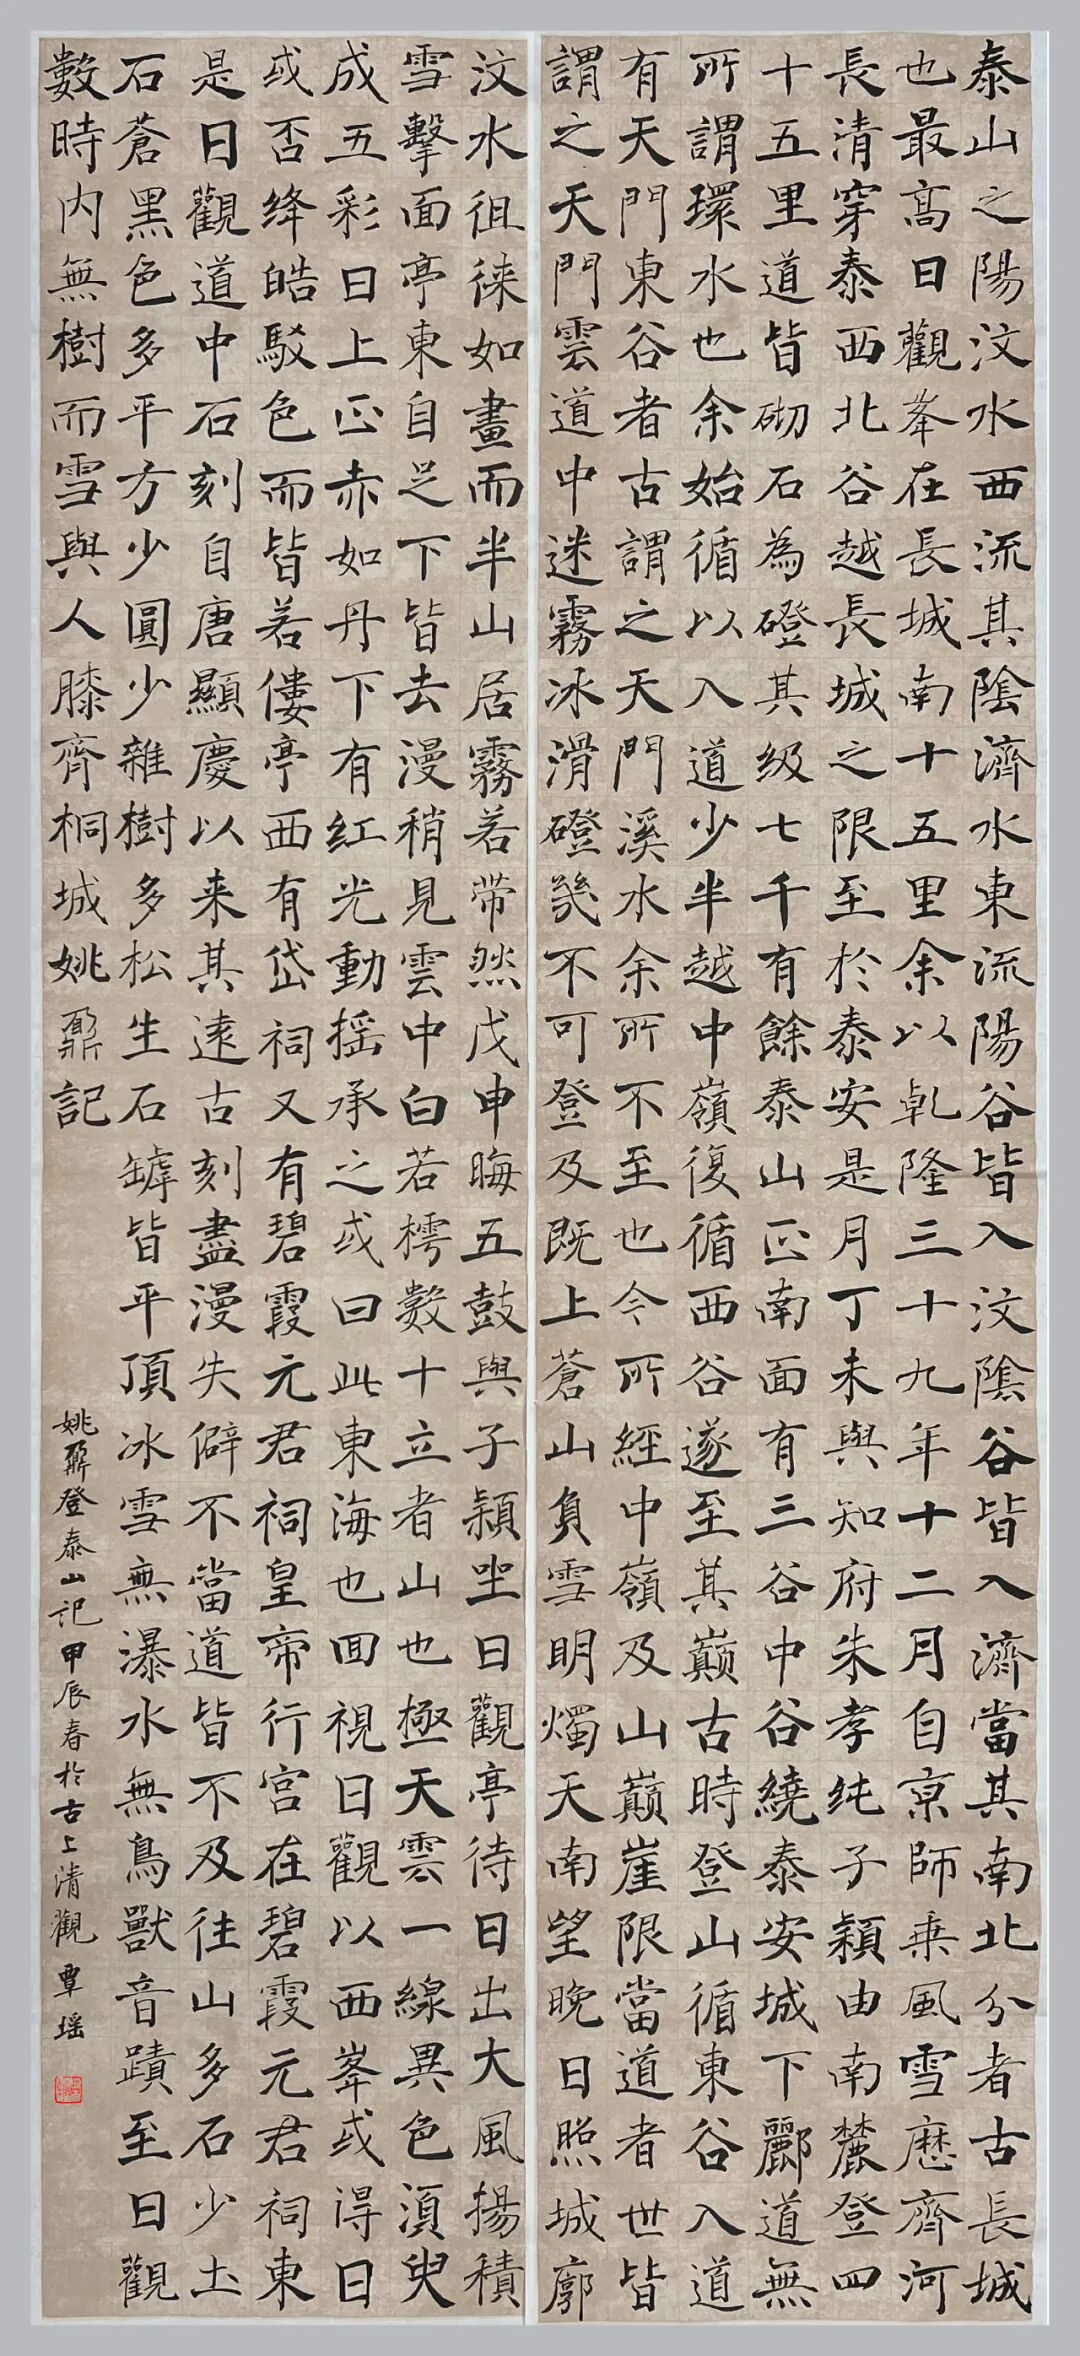 泰山之陽汶水西流其陰濟水東流陽谷皆入汶陰谷皆入濟當其南北分者古長城
也最高日觀峯在長城南十五里余以乹隆三十九年十二月自京師乗風雪歷齊河
長清穿泰西北谷越長城之限至於泰安是月丁未與知府朱孝纯子穎由南麓登四
十五里道皆砌石為磴其级七千有餘泰山正南面有三谷中谷繞泰安城下酈道無
所謂環水也余始循以入道少半越中嶺復循西谷遂至其巔古時登山循東谷入道
有天門東谷者古謂之天門溪水余所不至也今所經中嶺及山巔崖限當道者世皆
謂之天門雲道中迷霧冰滑磴幾不可登及既上蒼山負雪明燭天南望晚日照城廓
汶水徂徠如畫而半山居霧若带然戊申晦五鼓與子穎坐日觀亭待日出大風揚積
雪擊面亭東自足下皆去漫稍見雲中白若樗數十立者山也極天雲一線異色須臾
成五彩日上正赤如丹下有红光動摇承之或曰此東海也回視日觀以西峯或得日
或否绛皓駁色而皆若僂亭西有岱祠又有碧霞元君祠皇帝行宫在碧霞元君祠東
是日觀道中石刻自唐顯慶以来其遠古刻盡漫失僻不當道皆不及往山多石少土
石蒼黑色多平方少圓少雜樹多松生石罅皆平頂冰雪無瀑水無鳥獸音蹟至日觀
數時内無樹而雪與人膝齊桐城姚鼐記
姚鼐登泰山记甲辰春於古上清觀覃瑶